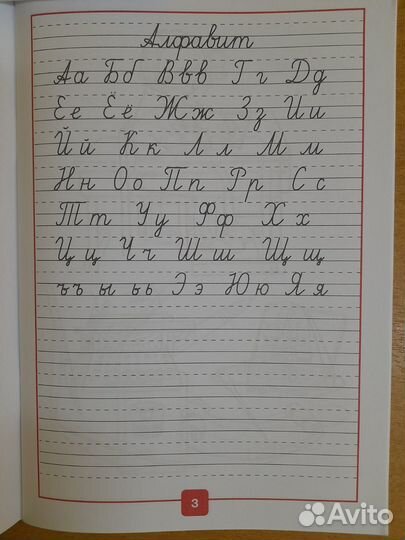 Алфавит
Аа Бб Ввв Гг Дд
Ее Ёё Жж Зз Ии
Йй Кк Лл Мм
Нн Оо Пп Рр Сс
Тт Уу Фф Хх
Цц Чч Шш Щщ
ъъ ы ьь Ээ Юю Яя
3
Avito